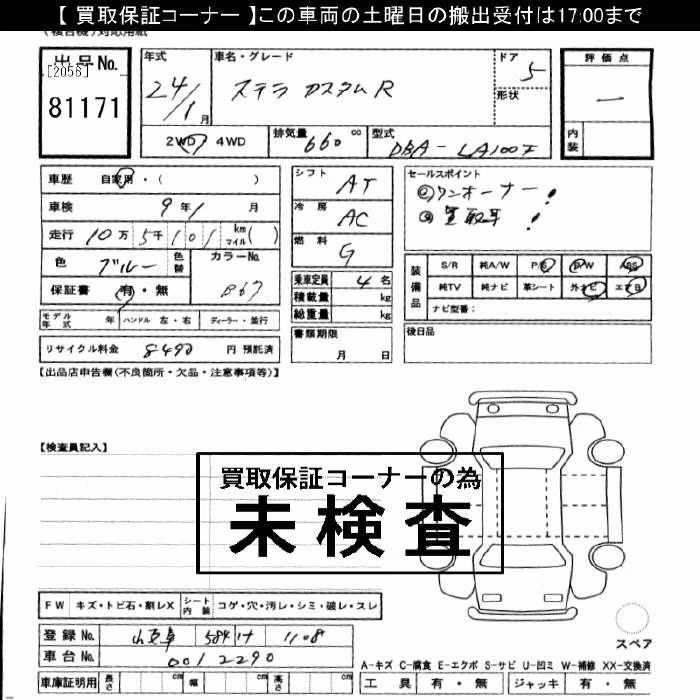 【 買取保証コーナー 】この車両の土曜日の搬出受付は17:00まで
(複合機)対応用紙
出品No.
[2056]
81171
年式
24/1月
車名・グレード
ステラ カスタムR
ドア
5
形状
2WD ・ 4WD
排気量
660 cc
型式
DBA-LA100F
評価点
一
内装
車歴 自家用・( )
車検 9年1月
走行 10万5千101 km マイル( )
色 ブルー 色替
カラーNo. B67
保証書 有・無
モデル年式 年 ハンドル 左・右 ディーラー・並行
リサイクル料金 8490 円 預託済
シフト AT
冷房 AC
燃料 G
乗車定員 4 名
積載量 kg
総重量 kg
書類期限
月 日
セールスポイント
◎ワンオーナー!
◎買取車!
装備品
S/R 純A/W P/S P/W ABS
純TV 純ナビ 革シート 外ナビ エアB
ナビ型番:
後日品
【出品店申告欄(不良箇所・欠品・注意事項等)】
【検査員記入】
買取保証コーナーの為
未検査
FW キズ・トビ石・割レX シート内装 コゲ・穴・汚レ・シミ・破レ・スレ
登録No. 584 1108
車台No. 0012290
車庫証明用 長さ cm 幅 cm 高さ cm
スペア
A-キズ C-腐食 E-エクボ S-サビ U-凹ミ W-補修 XX-交換済
工具 有・無 ジャッキ 有・無